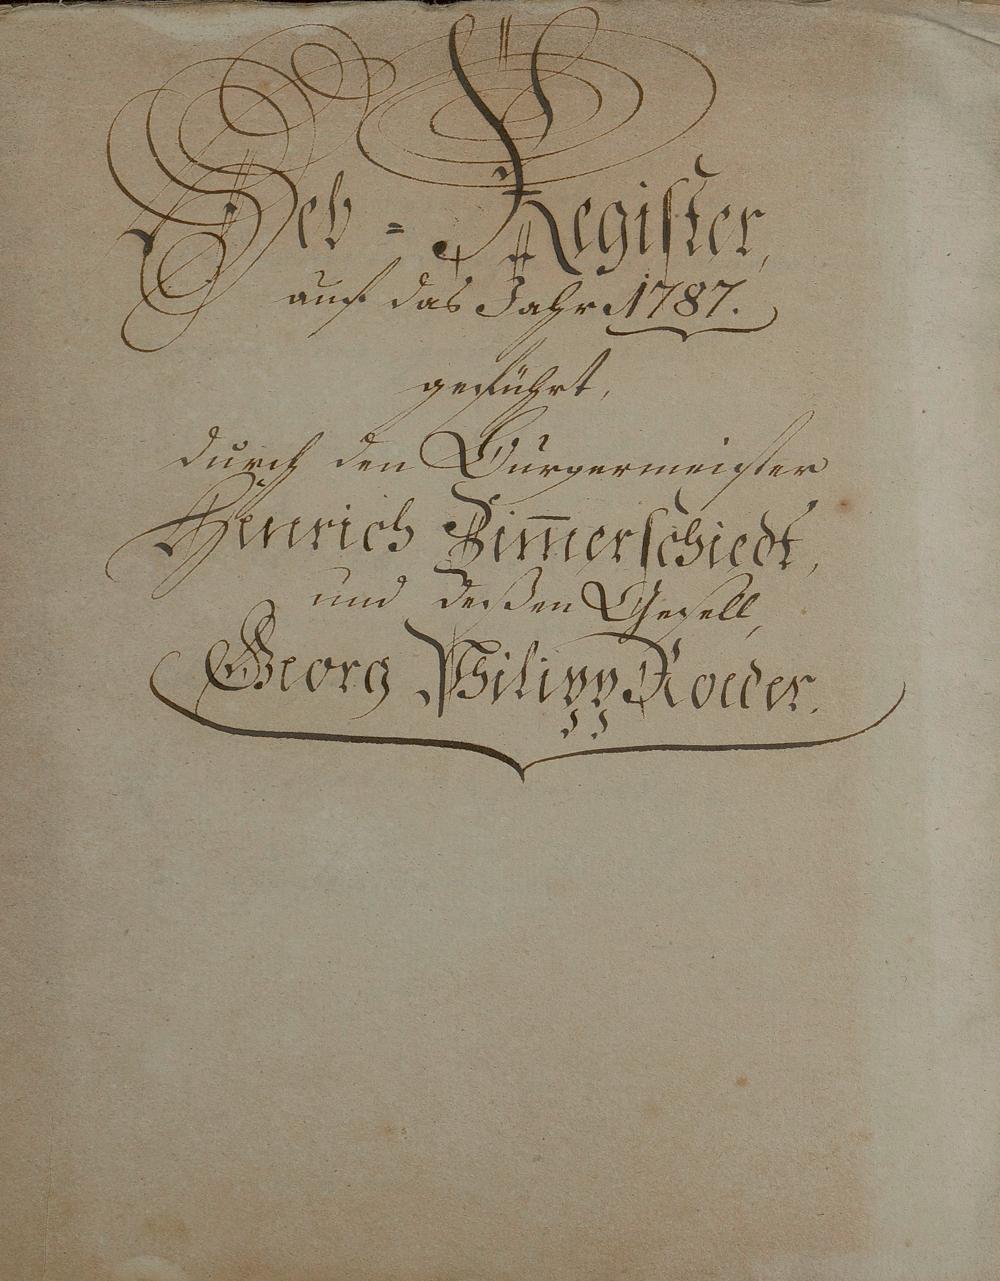 Heb = Register,
auf das Jahr 1787.
geführt,
durch den Bürgermeister
Henrich Zim̅erschiedt,
und deßen Gesell,
Georg Philipp Roeder.